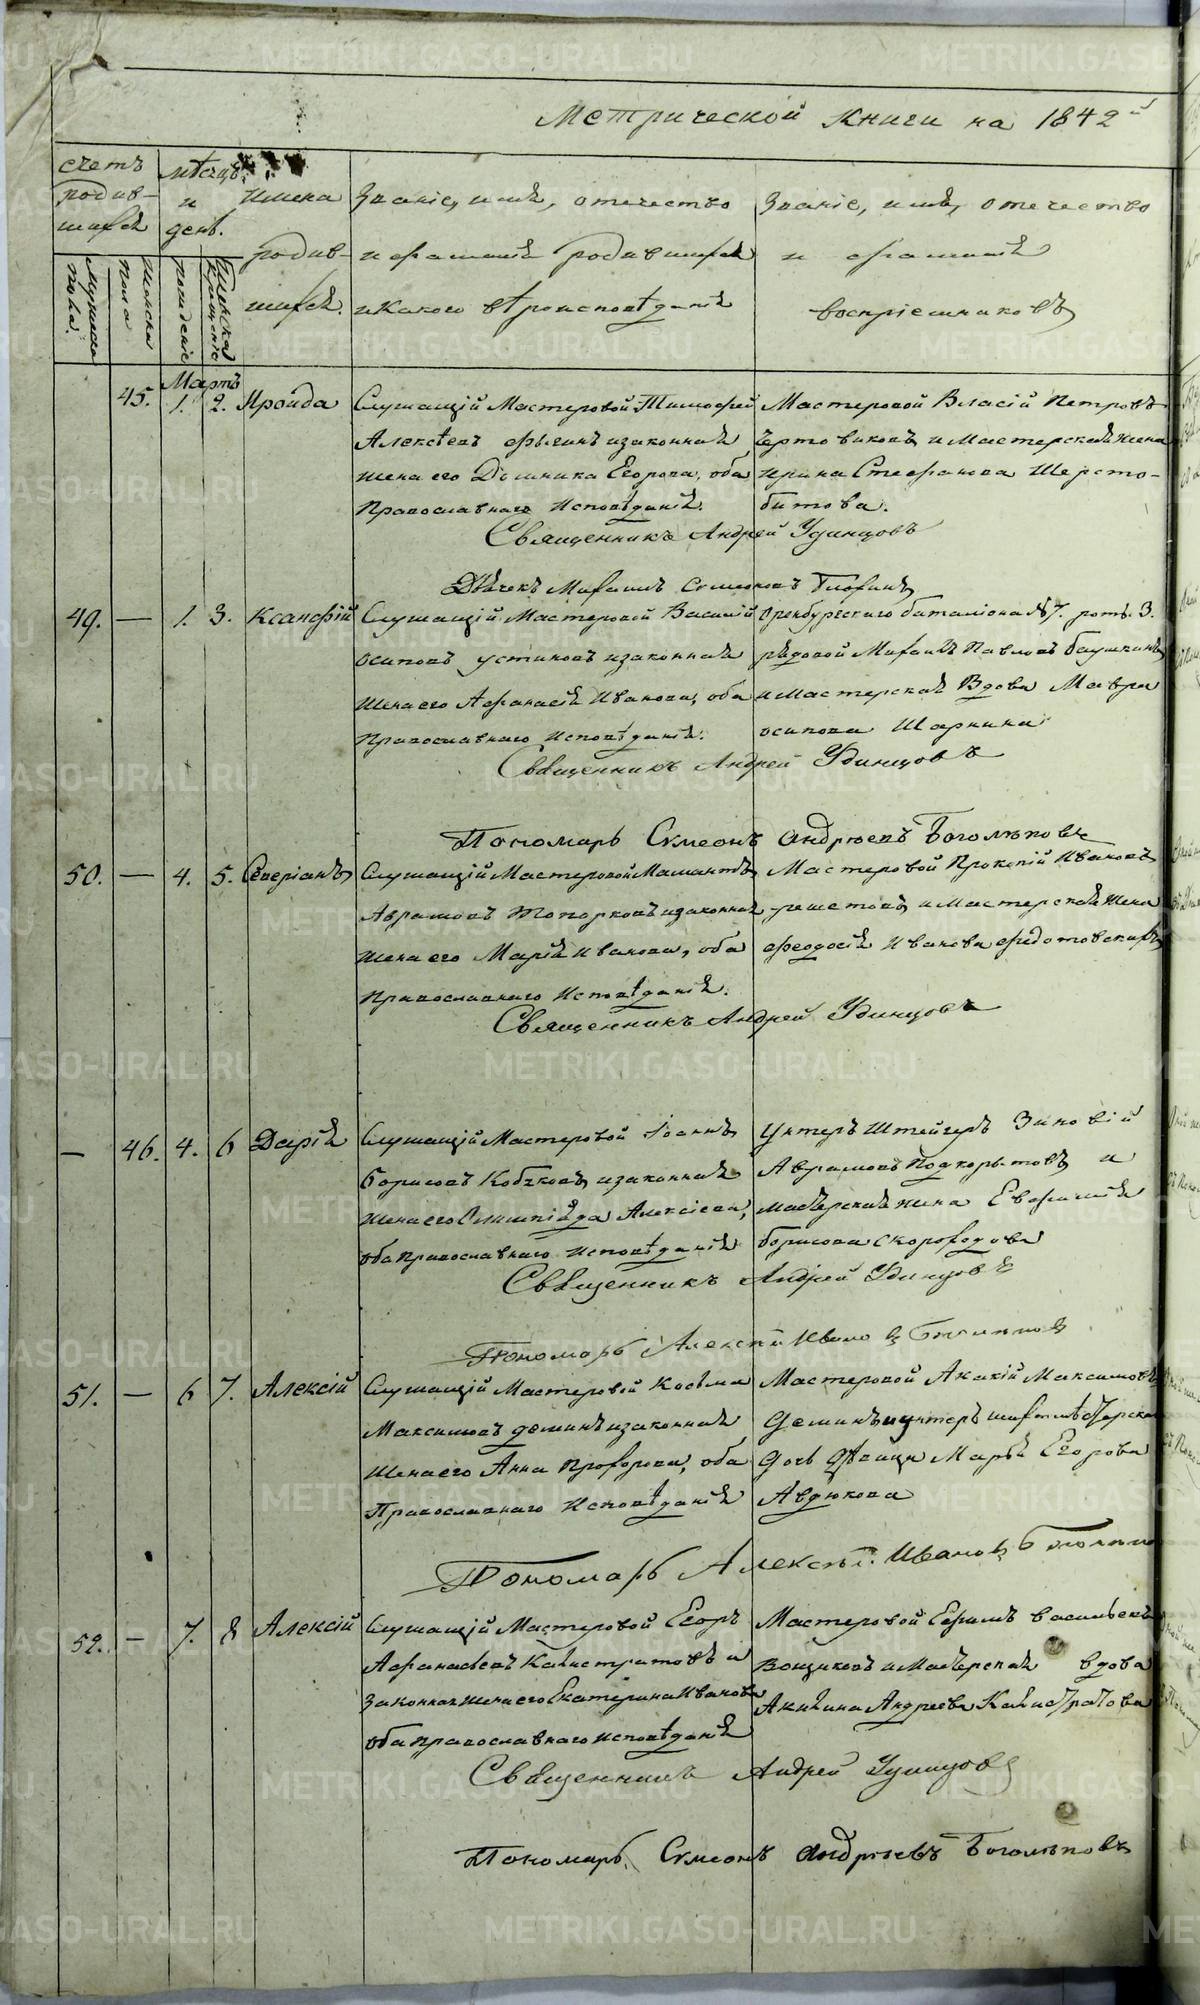 Метрической книги на 1842й
счетъ родив-шихся
мѣсяцъ и день.
имена родив-шихся.
Званіе, имя, отечество
и фамилія родившихся
и какого вѣроисповѣданія
Званіе, имя, отечество
и фамилія
воспріемниковъ
Мужеска пола.
Женска пола
рожденіе
крещеніе
Мартъ
45. 1. 2. Ираида
Служащій Мастеровой Тимофей
Алексѣевъ и законная
жена его Домника Егорова, оба
Православнаго Исповѣданія.
Мастеровой Власій Петровъ
Чертовиковъ и Мастерская жена
Ирина Стефанова Шерсто-
битова.
Священникъ Андрей Удинцовъ
Дьячекъ Михаилъ Симеоновъ
49. — 1. 3. Ксанфій
Служащій Мастеровой Василій
Осиповъ Устиновъ и законная
жена его Афанасія Иванова, оба
Православнаго Исповѣданія.
Оренбургскаго баталіона №7. роты. 3.
рядовой Михаилъ Павловъ Баушкинъ
и Мастерская Вдова Мавра
Осипова Шаркина
Священникъ Андрей Удинцовъ
Пономарь Симеонъ Андреевъ Боголѣповъ
50. — 4. 5. Северіанъ
Служащій Мастеровой Мамантъ
Аврамовъ Топорковъ и законная
жена его Марія Иванова, оба
Православнаго Исповѣданія.
Мастеровой Прокопій Ивановъ
Решетовъ и Мастерская жена
Феодосія Иванова Федотовскихъ
Священникъ Андрей Удинцовъ
— 46. 4. 6 Дарія
Служащій Мастеровой Іоаннъ
Борисовъ Кобяковъ и законная
жена его Олимпіада Алексіева,
оба Православнаго Исповѣданія
Унтеръ Штейгеръ Зиновій
Аврамовъ Подкорытовъ и
мастерская жена Евфимія
Борисова Скороходова
Священникъ Андрей Удинцовъ
Пономарь Алексѣй Ивановъ
51. — 6 7. Алексій
Служащій Мастеровой Косьма
Максимовъ Деминъ и законная
жена его Анна Прохорова, оба
Православнаго Исповѣданія
Мастеровой Акакій Максимовъ
Деминъ и унтеръ шихтмейстерская
дочь дѣвица Марья Егорова
Авдюкова
Пономарь Алексѣй Ивановъ
52. — 7. 8 Алексій
Служащій Мастеровой Егоръ
Афанасьевъ Калистратовъ и
законная жена его Екатерина Иванова
оба православнаго исповѣданія
Мастеровой Ефимъ Васильевъ
Вощиковъ и Мастерская вдова
Акилина Андреева Калистратова
Священникъ Андрей Удинцовъ
Пономарь Симеонъ Андреевъ Боголѣповъ
METRIKI.GASO-URAL.RU